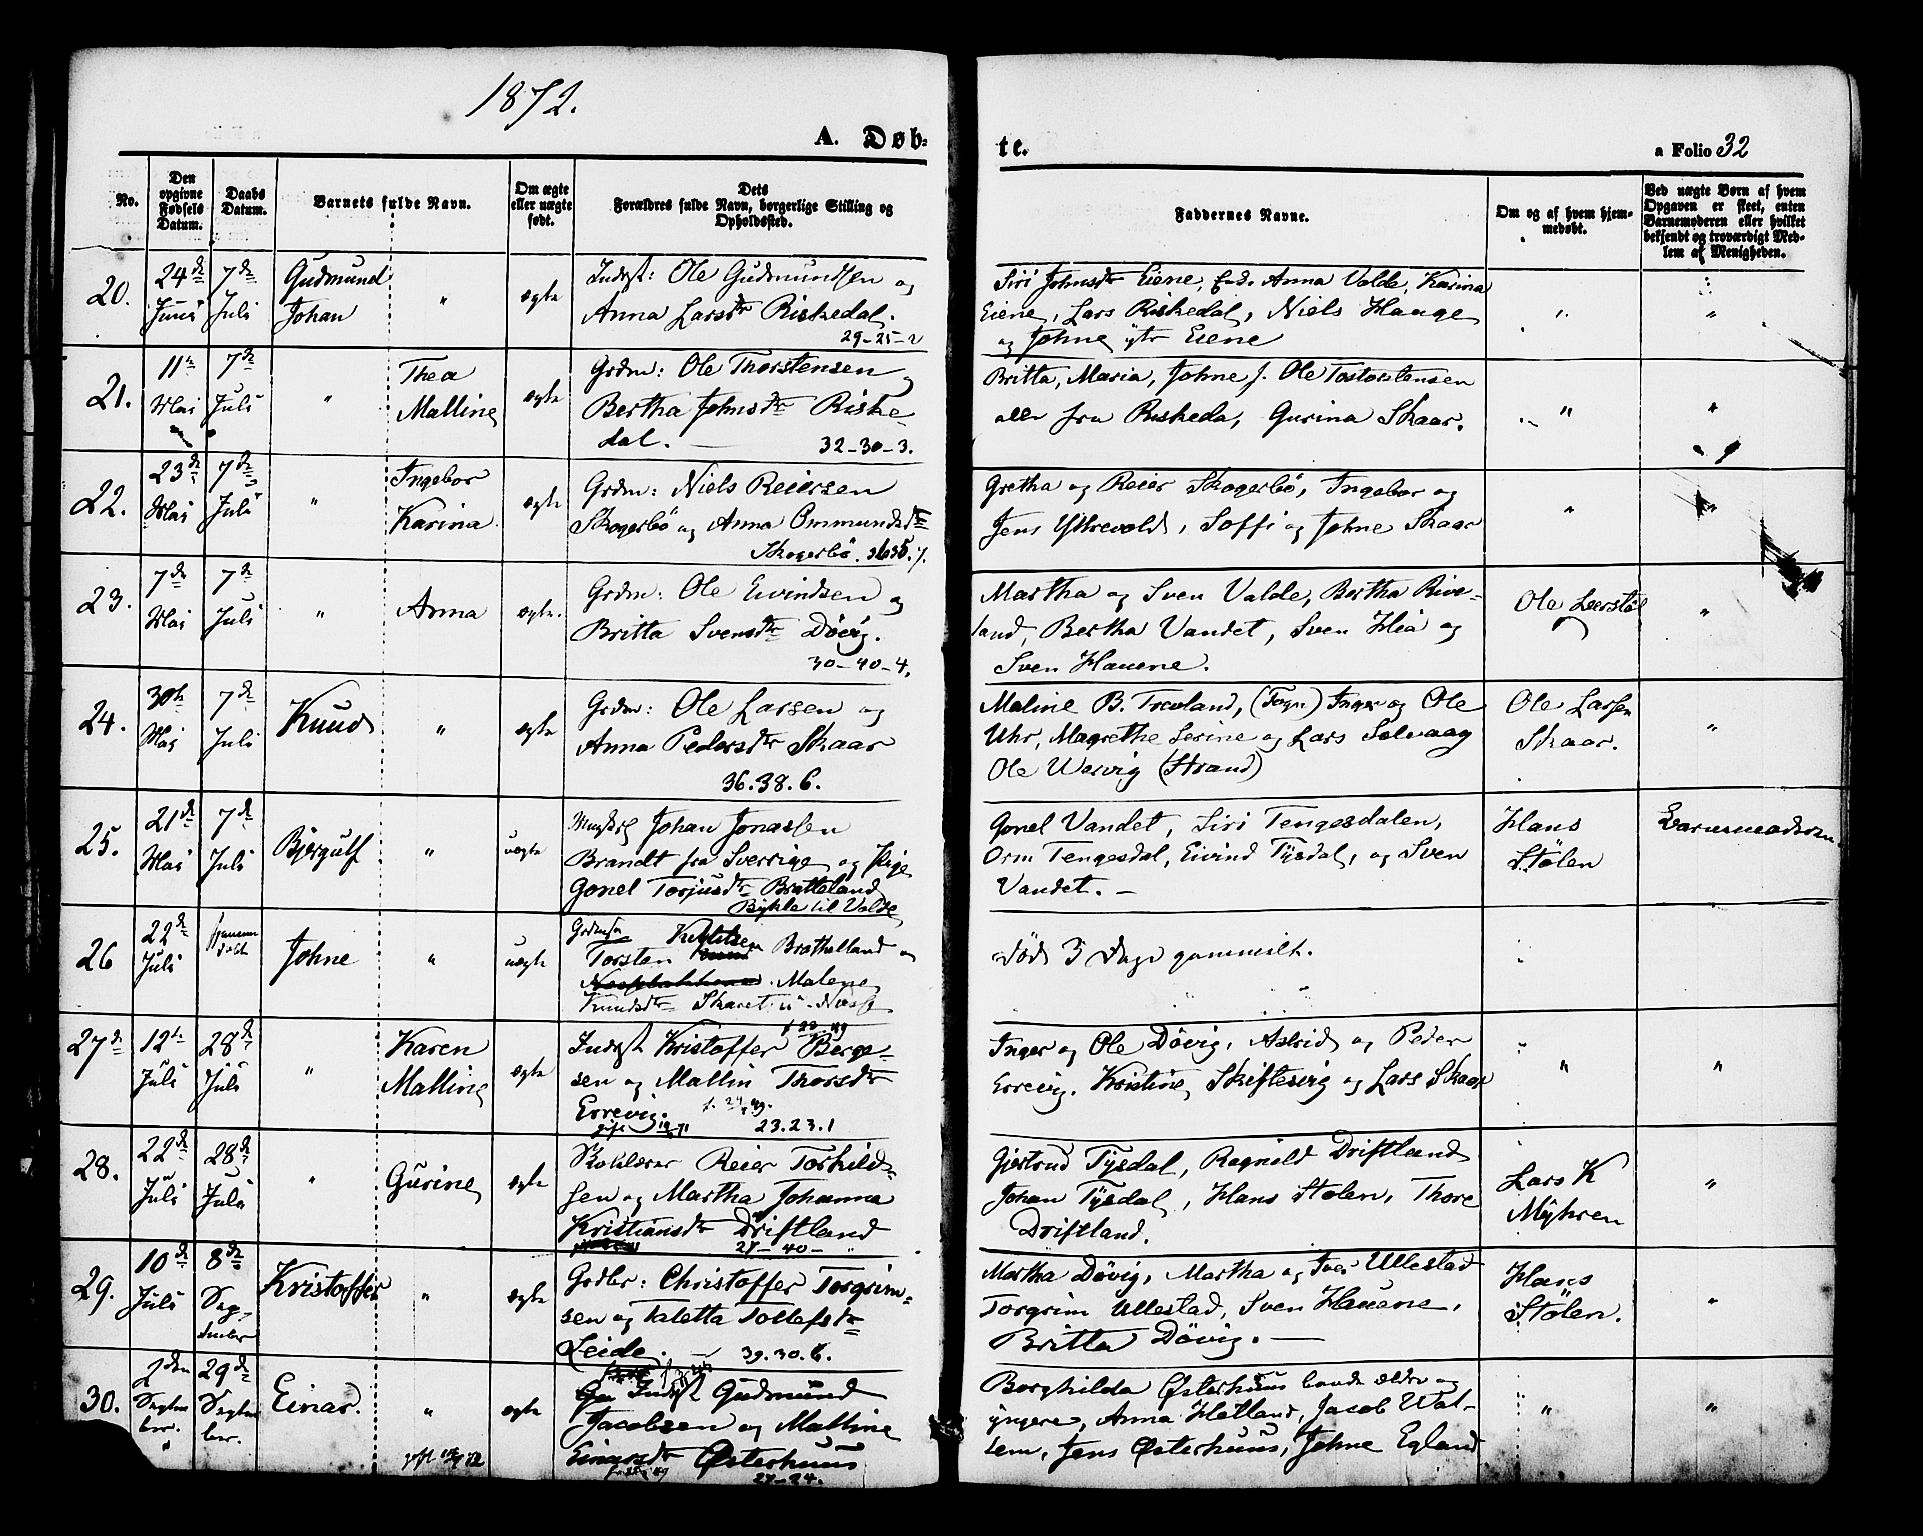 1872.
A. Døb-
te.
a Folio 32
No.
Den opgivne Fødsels Datum.
Daabs Datum.
Barnets fulde Navn.
Om ægte eller uægte født.
Dets Forældres fulde Navn, borgerlige Stilling og Opholdssted.
Faddernes Navne.
Om og af hvem hjemmedøbt.
Ved uægte Børn af hvem Opgaven er skeet, enten Barnemoderen eller hvilket bekjendt og troværdigt Medlem af Menigheden.
20. 24de Juni 7de Juli Gudmund Johan " ægte
Indst: Ole Gudmundsen og
Anna Larsdtr Riskedal.
29-25-2
Siri Johnsdtr Eiene, Anna Valde, Karina
Eiene, Lars Riskedal, Niels Hauge
og Johne ytr Eiene
" "
21. 11te Mai 7de Juli " Thea Malline ægte
Grdm: Ole Thorstensen og
Bertha Johnsdtr Riske-
dal. — 32-30-3.
Britta, Maria, Johne, Ole Tostorstensen
alle fra Riskeda, Gurina Skaar.
" "
22. 23de Mai 7de Juli " Ingebor Karina ægte
Grdm: Niels Reiersen
Skogerbö og Anna Ommundsdtr
Skogerbö.
Gretha og Reier Skogerbö, Ingebor og
Jens Ythrevold, Soffi og Johne Skaar
" "
23. 7de Mai 7de Juli " Anna ægte.
Grdm: Ole Eivindsen og
Britta Svensdtr Dövig.
30-40-4.
Martha og Sven Valde, Bertha Rive-
land, Bertha Vandet, Sven Hiå og
Sven Hauene.
Ole Leerstøl "
24. 30te Mai 7de Juli Knud " ægte
Grdm: Ole Larsen og
Anna Pedersdtr Skaar
36.38.6.
Maline B. Treoland, (Fogn) Inger og Ole
Uhr, Magrethe Serine og Lars Solvaag
Ole Wervig (Strand)
Ole Larsen
Skaar. "
25. 21de Mai 7de Juli Bjergulf " uægte
Johan Jonassen
Brandt fra Sverrige og Pige
Gonel Torjusdtr Bratteland
Bykle til Valde
Gonel Vandet, Siri Tengesdalen,
Orm Tengesdal, Eivind Tysdal, og Sven
Vandet. —
Hans
Stølen
Barnemoderen
26 22de Juli hjemmedøbt Johne " uægte
Torsten Brathelland og
Malene
Knudsdtr Skaret
Død 3 Dage gammelt.
27de 12te Juli 28de Juli " Karen Malline ægte
Indst Kristoffer Berge-
sen og Mallin Thorsdtr
Errevig.
23.23.1
Inger og Ole Dövig, Astrid og Peder
Errevig. Kristine Skiftesvig og Lars Skaar
" "
28. 22de Juli 28de Juli " Gurine ægte
Skolelærer Reier Torkild-
sen og Martha Johanna
Kristiansdtr Driftland
27-40-"
Gjertrud Tysdal, Ragnild Driftland
Johan Tysdal, Hans Stølen, Thore
Driftland.
Lars K
Myhren "
29. 10de Juli 8de September Kristoffer " ægte
Grdbr: Christoffer Torgrim-
sen og Taletta Tollefsdtr
Leide. — 39.30.6.
Martha Dövig, Martha og Iver Ullestad
Torgrim Ullestad, Sven Hauene,
Britta Dövig. —
Hans
Stölen. "
30. 2den September 29de September Einar. " ægte
Indst Gudmund
Jacobsen og Malline
Einarsdtr Østerhuus
27-24.
Borghilda Østerhuus baade ældre og
yngere, Anna Hetland, Jacob Wat-
sem, Jens Østerhuus, Johne Egland
" "